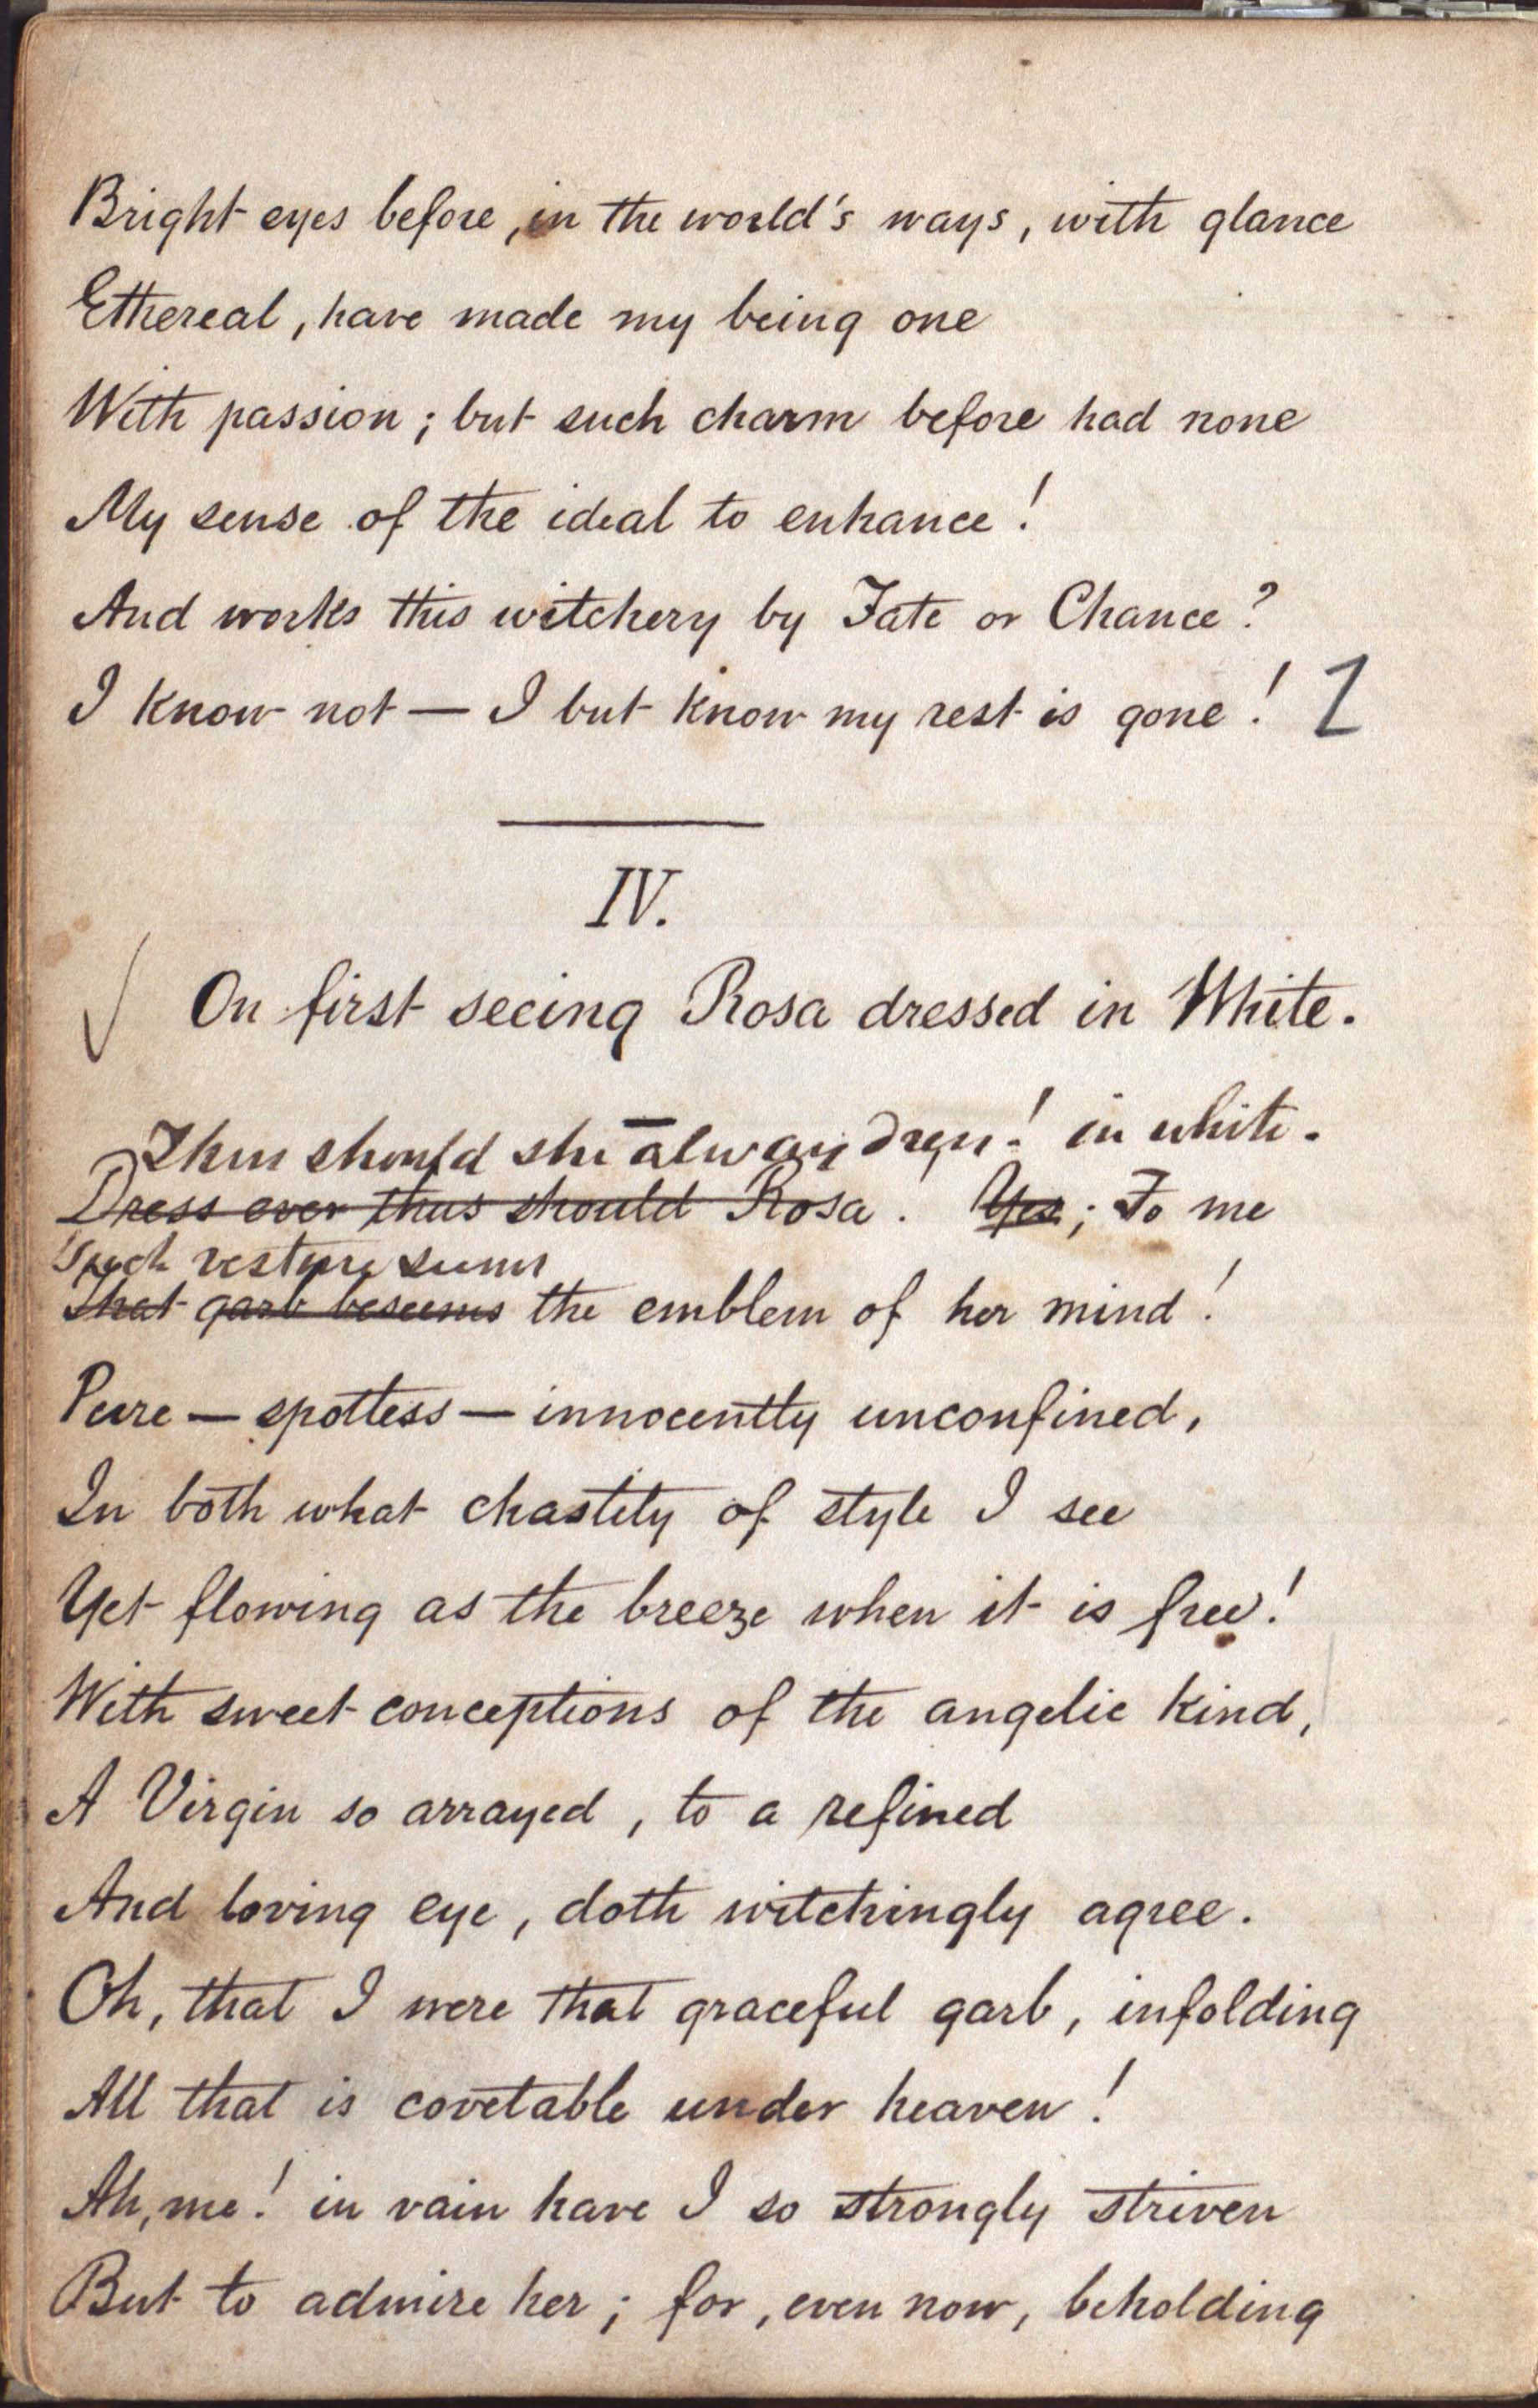 Bright eyes before, in the world's ways, with glance
Ethereal, have made my being one
With passion; but such charm before had none
My sense of the ideal to enhance!
And works this witchery by Fate or Chance?
I know not — I but know my rest is gone!
IV.
On first seeing Rosa dressed in White.
Thus should she always dress! in white.
Dress ever thus should Rosa! Yes; To me
Such vesture seems
That garb beseems the emblem of her mind!
Pure — spotless — innocently unconfined,
In both what chastity of style I see
Yet flowing as the breeze when it is free!
With sweet conceptions of the angelic kind,
A Virgin so arrayed, to a refined
And loving eye, doth witchingly agree.
Oh, that I were that graceful garb, infolding
All that is covetable under heaven!
Ah, me! in vain have I so strongly striven
But to admire her; for, even now, beholding